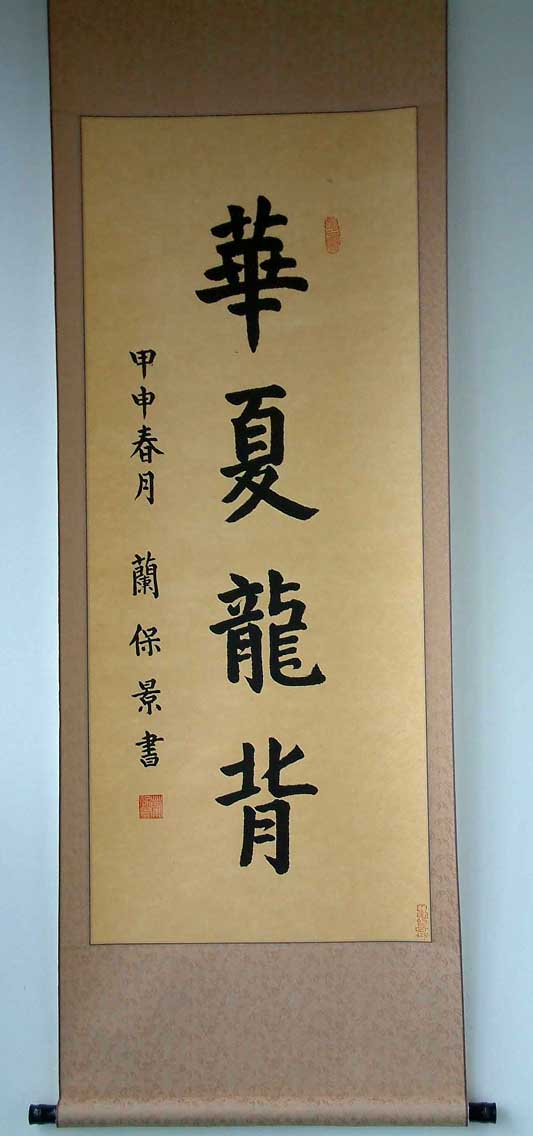 華夏龍背
甲申春月 蘭保景書